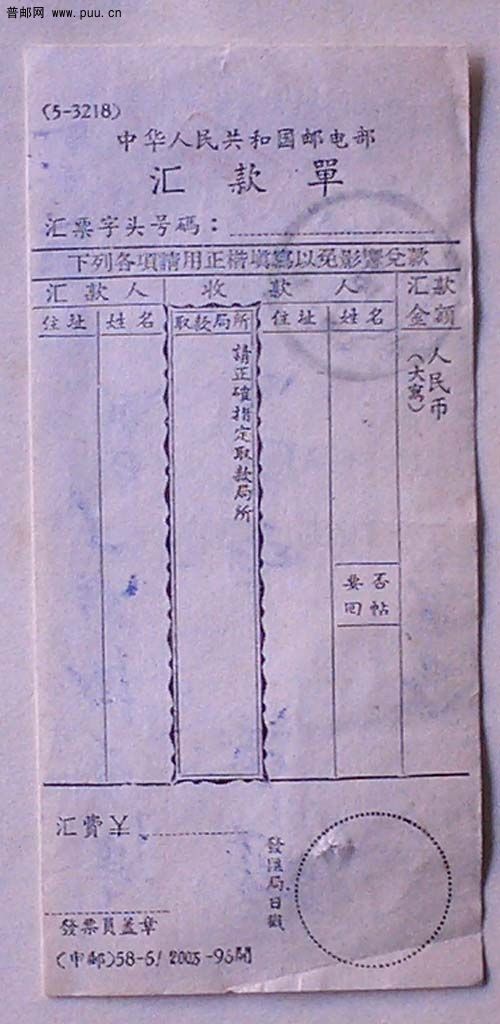 普邮网 www.puu.cn
(5-3218)
中华人民共和国邮电部
汇款單
汇票字头号碼：
下列各項請用正楷填寫以免影響兌款
汇款人 收款人 汇款金額
住址 姓名 取款局所 住址 姓名
請正確指定取款局所
人民币
(大寫)
要否
回帖
汇費￥
發匯局日戳
發票員盖章
(中邮)58-6! 2005-96開